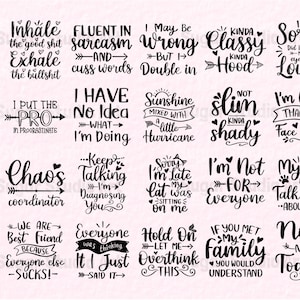 Inhale
the good shit
Exhale
the bullshit
FLUENT IN
sarcasm
AND
cuss words
I May Be
Wrong
BUT I
Double in
KINDA
Classy
KINDA
Hood
So
I PUT THE
PRO
IN PROCRASTINATE
I HAVE
No Idea
WHAT
I'm Doing
Sunshine
MIXED WITH
a little
Hurricane
NOT
slim
KINDA
shady
Chaos
coordinator
Keep
Talking
I'm
Diagnosing
you
Sorry
I'm Late
my cat
WAS
SITTING
on me
I'm Not
FOR
Everyone
My
WE ARE
Best Friend
BECAUSE
Everyone else
SUCKS!
Everyone
was thinking
It I Just
SAID IT
Hold On
LET ME
Overthink
THIS
IF YOU MET
My
Family
YOU WOULD
UNDERSTAND